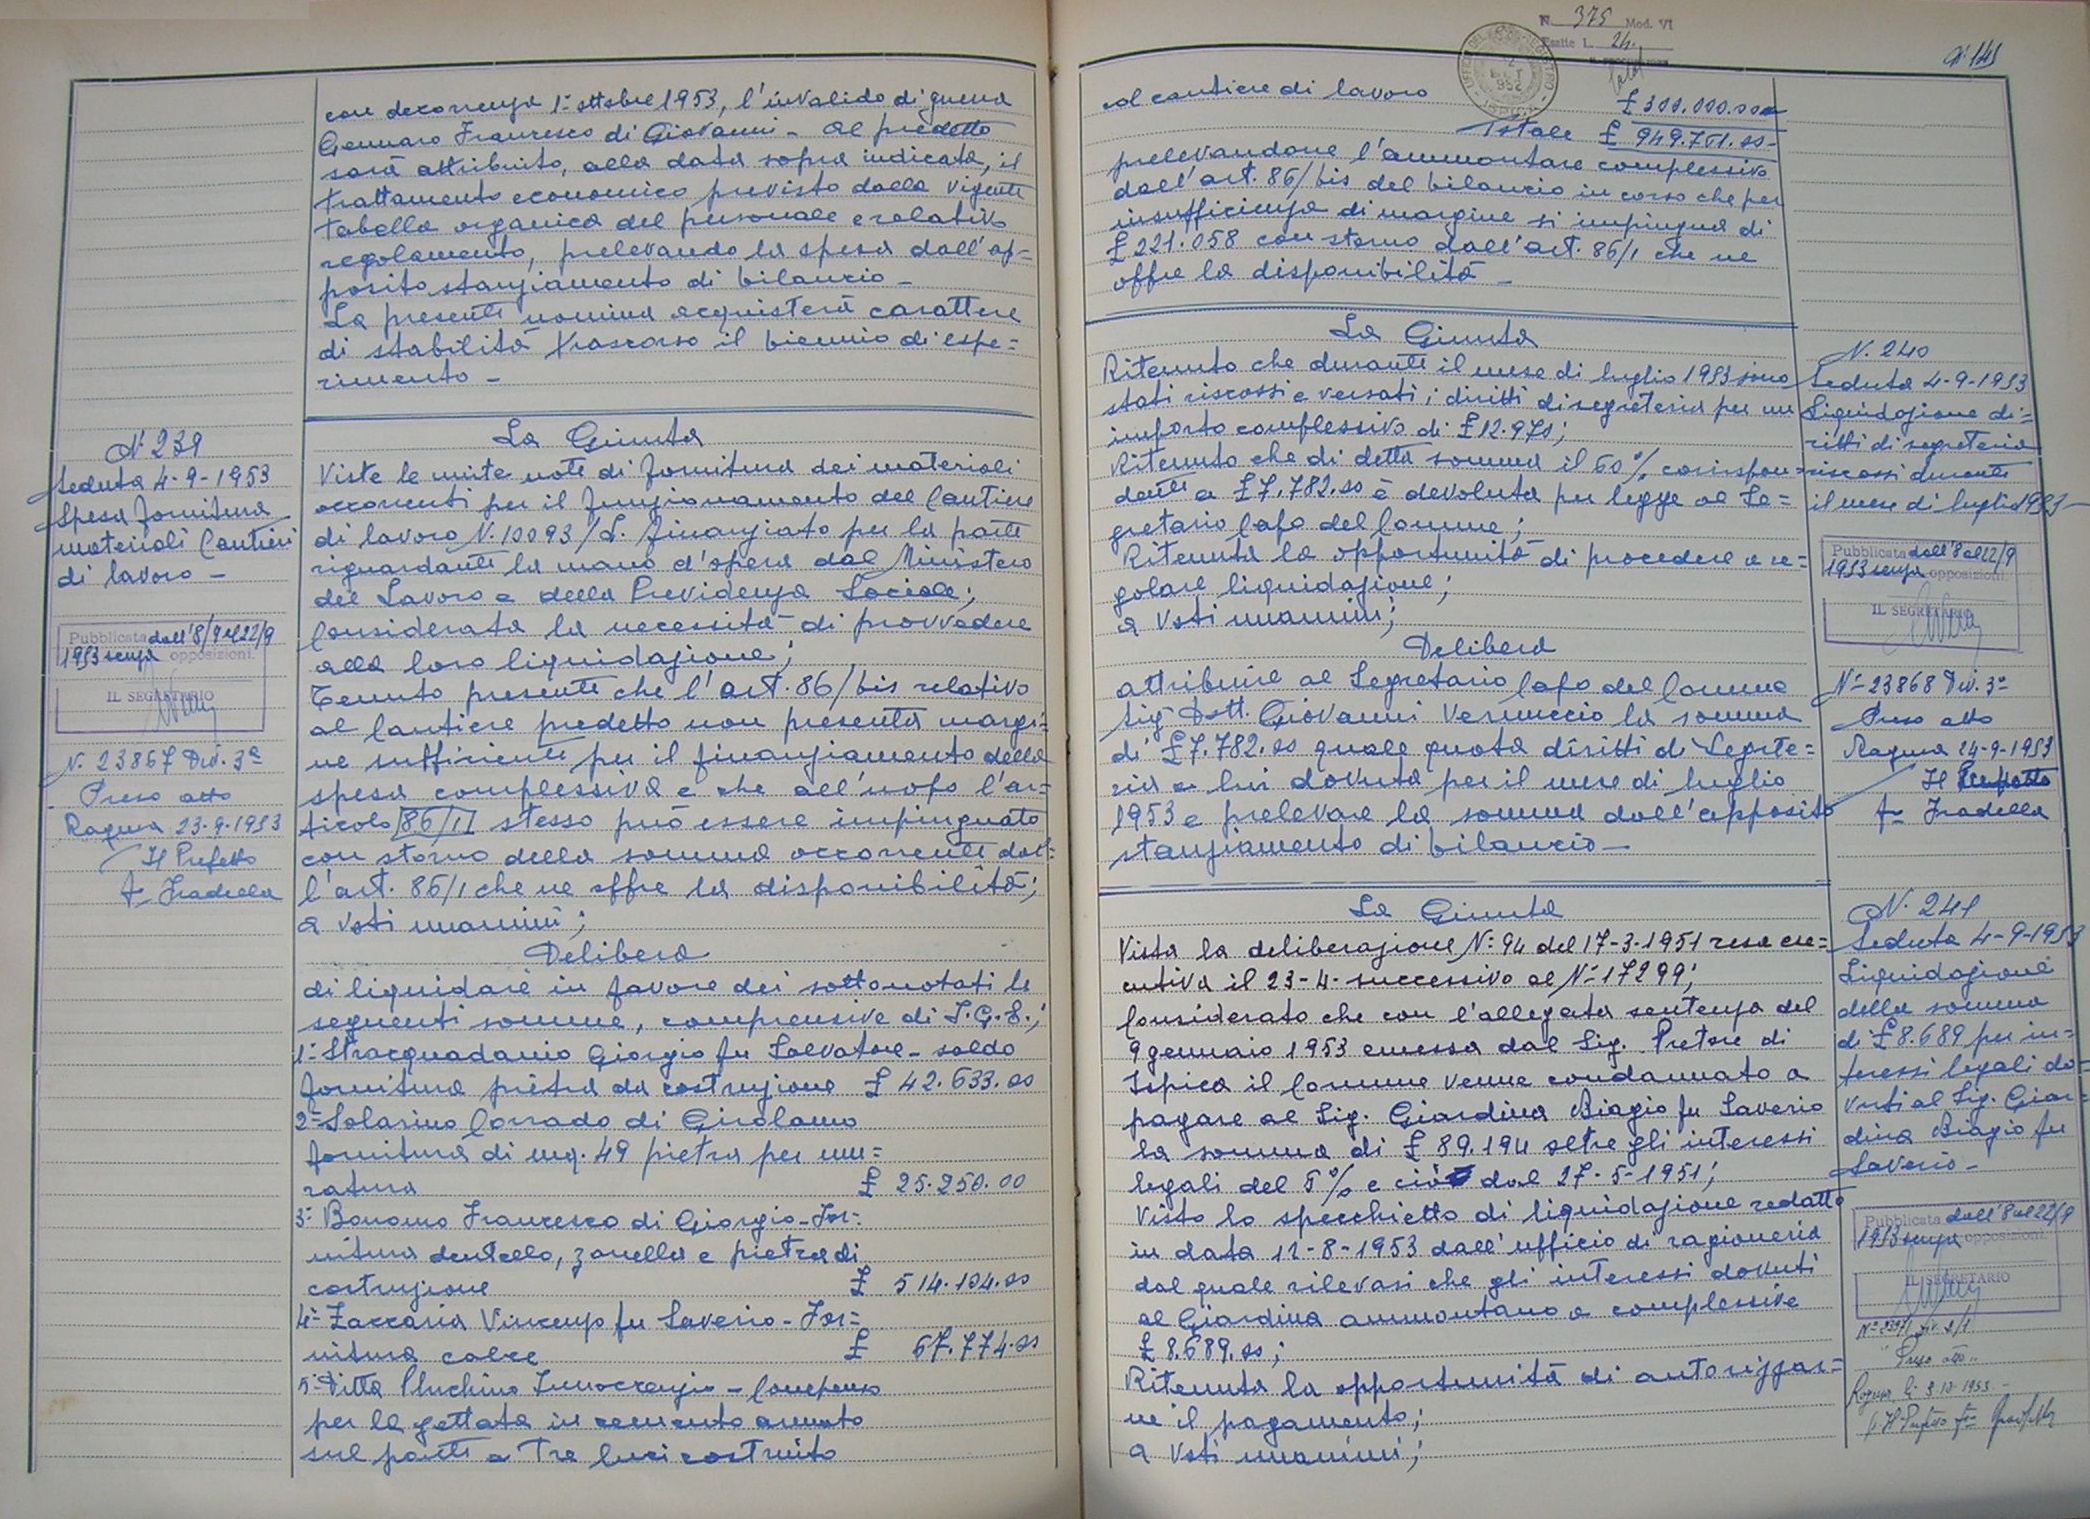 con decorrenza 1° ottobre 1953, l'invalido di guerra
Gennaro Francesco di Giovanni - Al predetto
sarà attribuito, alla data sopra indicata, il
trattamento economico previsto dalla vigente
tabella organica del personale e relativo
regolamento, prelevando la spesa dall'ap=
posito stanziamento di bilancio -
La presente nomina acquisterà carattere
di stabilità trascorso il biennio di espe=
rimento -
N. 239
Seduta 4-9-1953
Spesa fornitura
materiali Cantieri
di lavoro -
Pubblicata dall'8/9 al 22/9
1953 senza opposizioni.
IL SEGRETARIO
N. 23867 Div. 3ª
Preso atto
Ragusa 23-9-1953
Il Prefetto
Fradella
La Giunta
Viste le unite note di fornitura dei materiali
occorrenti per il funzionamento del Cantiere
di lavoro N. 10093/L. finanziato per la parte
riguardante la mano d'opera dal Ministero
del Lavoro e della Previdenza Sociale;
Considerata la necessità di provvedere
alla loro liquidazione;
Tenuto presente che l'art. 86/bis relativo
al Cantiere predetto non presenta margi=
ne sufficiente per il finanziamento della
spesa complessiva e che all'uopo l'ar=
ticolo 86/II stesso può essere impinguato
con storno della somma occorrente dal=
l'art. 86/1 che ne offre la disponibilità;
a voti unanimi;
Delibera
di liquidare in favore dei sottonotati le
seguenti somme, comprensive di I.G.E.;
1° Stracquadanio Giorgio fu Salvatore - saldo
fornitura pietra da costruzione £ 42.633.00
2° Solarino Corrado di Girolamo
fornitura di mq. 49 pietra per mu=
ratura £ 25.250.00
3° Bonomo Francesco di Giorgio - For=
nitura dentello, zanella e pietra di
costruzione £ 514.104.00
4° Zaccaria Vincenzo fu Saverio - For=
nitura calce £ 67.774.00
5° Ditta Pluchino Innocenzio - Compenso
per la gettata in cemento armato
sul ponte a tre luci costruito
N. 375 Mod. VI
Esatte L. 24.
UFFICIO DEL REGISTRO
2
952
141
al cantiere di lavoro £ 300.000.00
Totale £ 949.761.00-
prelevandone l'ammontare complessivo
dall'art. 86/bis del bilancio in corso che per
insufficienza di margine si impingua di
£ 221.058 con storno dall'art. 86/1 che ne
offre la disponibilità -
La Giunta
Ritenuto che durante il mese di luglio 1953 sono
stati riscossi e versati i diritti di segreteria per un
importo complessivo di £ 12.970;
Ritenuto che di detta somma il 60% corrispon=
dente a £ 7.782.00 è devoluta per legge al Se=
gretario Capo del Comune;
Ritenuta la opportunità di procedere a re=
golare liquidazione;
a voti unanimi;
Delibera
attribuire al Segretario Capo del Comune
Sig. Dott. Giovanni Vernuccio la somma
di £ 7.782.00 quale quota diritti di Segrete=
ria a lui dovuta per il mese di luglio
1953 e prelevare la somma dall'apposito
stanziamento di bilancio -
N. 240
Seduta 4-9-1953
Liquidazione di=
ritti di segreteria
riscossi durante
il mese di luglio 1953-
Pubblicata dall'8 al 22/9
1953 senza opposizioni.
IL SEGRETARIO
N° 23868 Div. 3ª
Preso atto
Ragusa 24-9-1953
Il Prefetto
Fradella
La Giunta
Vista la deliberazione N° 94 del 17-3-1951 resa ese=
cutiva il 23-4- successivo al N° 17299;
Considerato che con l'allegata sentenza del
9 gennaio 1953 emessa dal Sig. Pretore di
Ispica il Comune venne condannato a
pagare al Sig. Giardina Biagio fu Saverio
la somma di £ 89.194 oltre gli interessi
legali del 5% e ciò dal 27-5-1951;
Visto lo specchietto di liquidazione redatto
in data 12-8-1953 dall'ufficio di ragioneria
dal quale rilevasi che gli interessi dovuti
al Giardina ammontano a complessive
£ 8.689.00;
Ritenuta la opportunità di autorizzar=
ne il pagamento;
a voti unanimi;
N. 241
Seduta 4-9-1953
Liquidazione
della somma
di £ 8.689 per in=
teressi legali do=
vuti al Sig. Giar=
dina Biagio fu
Saverio -
Pubblicata dall'8 al 22/9
1953 senza opposizioni.
IL SEGRETARIO
Preso atto
Ragusa li 3.10.1953 -
Il Prefetto